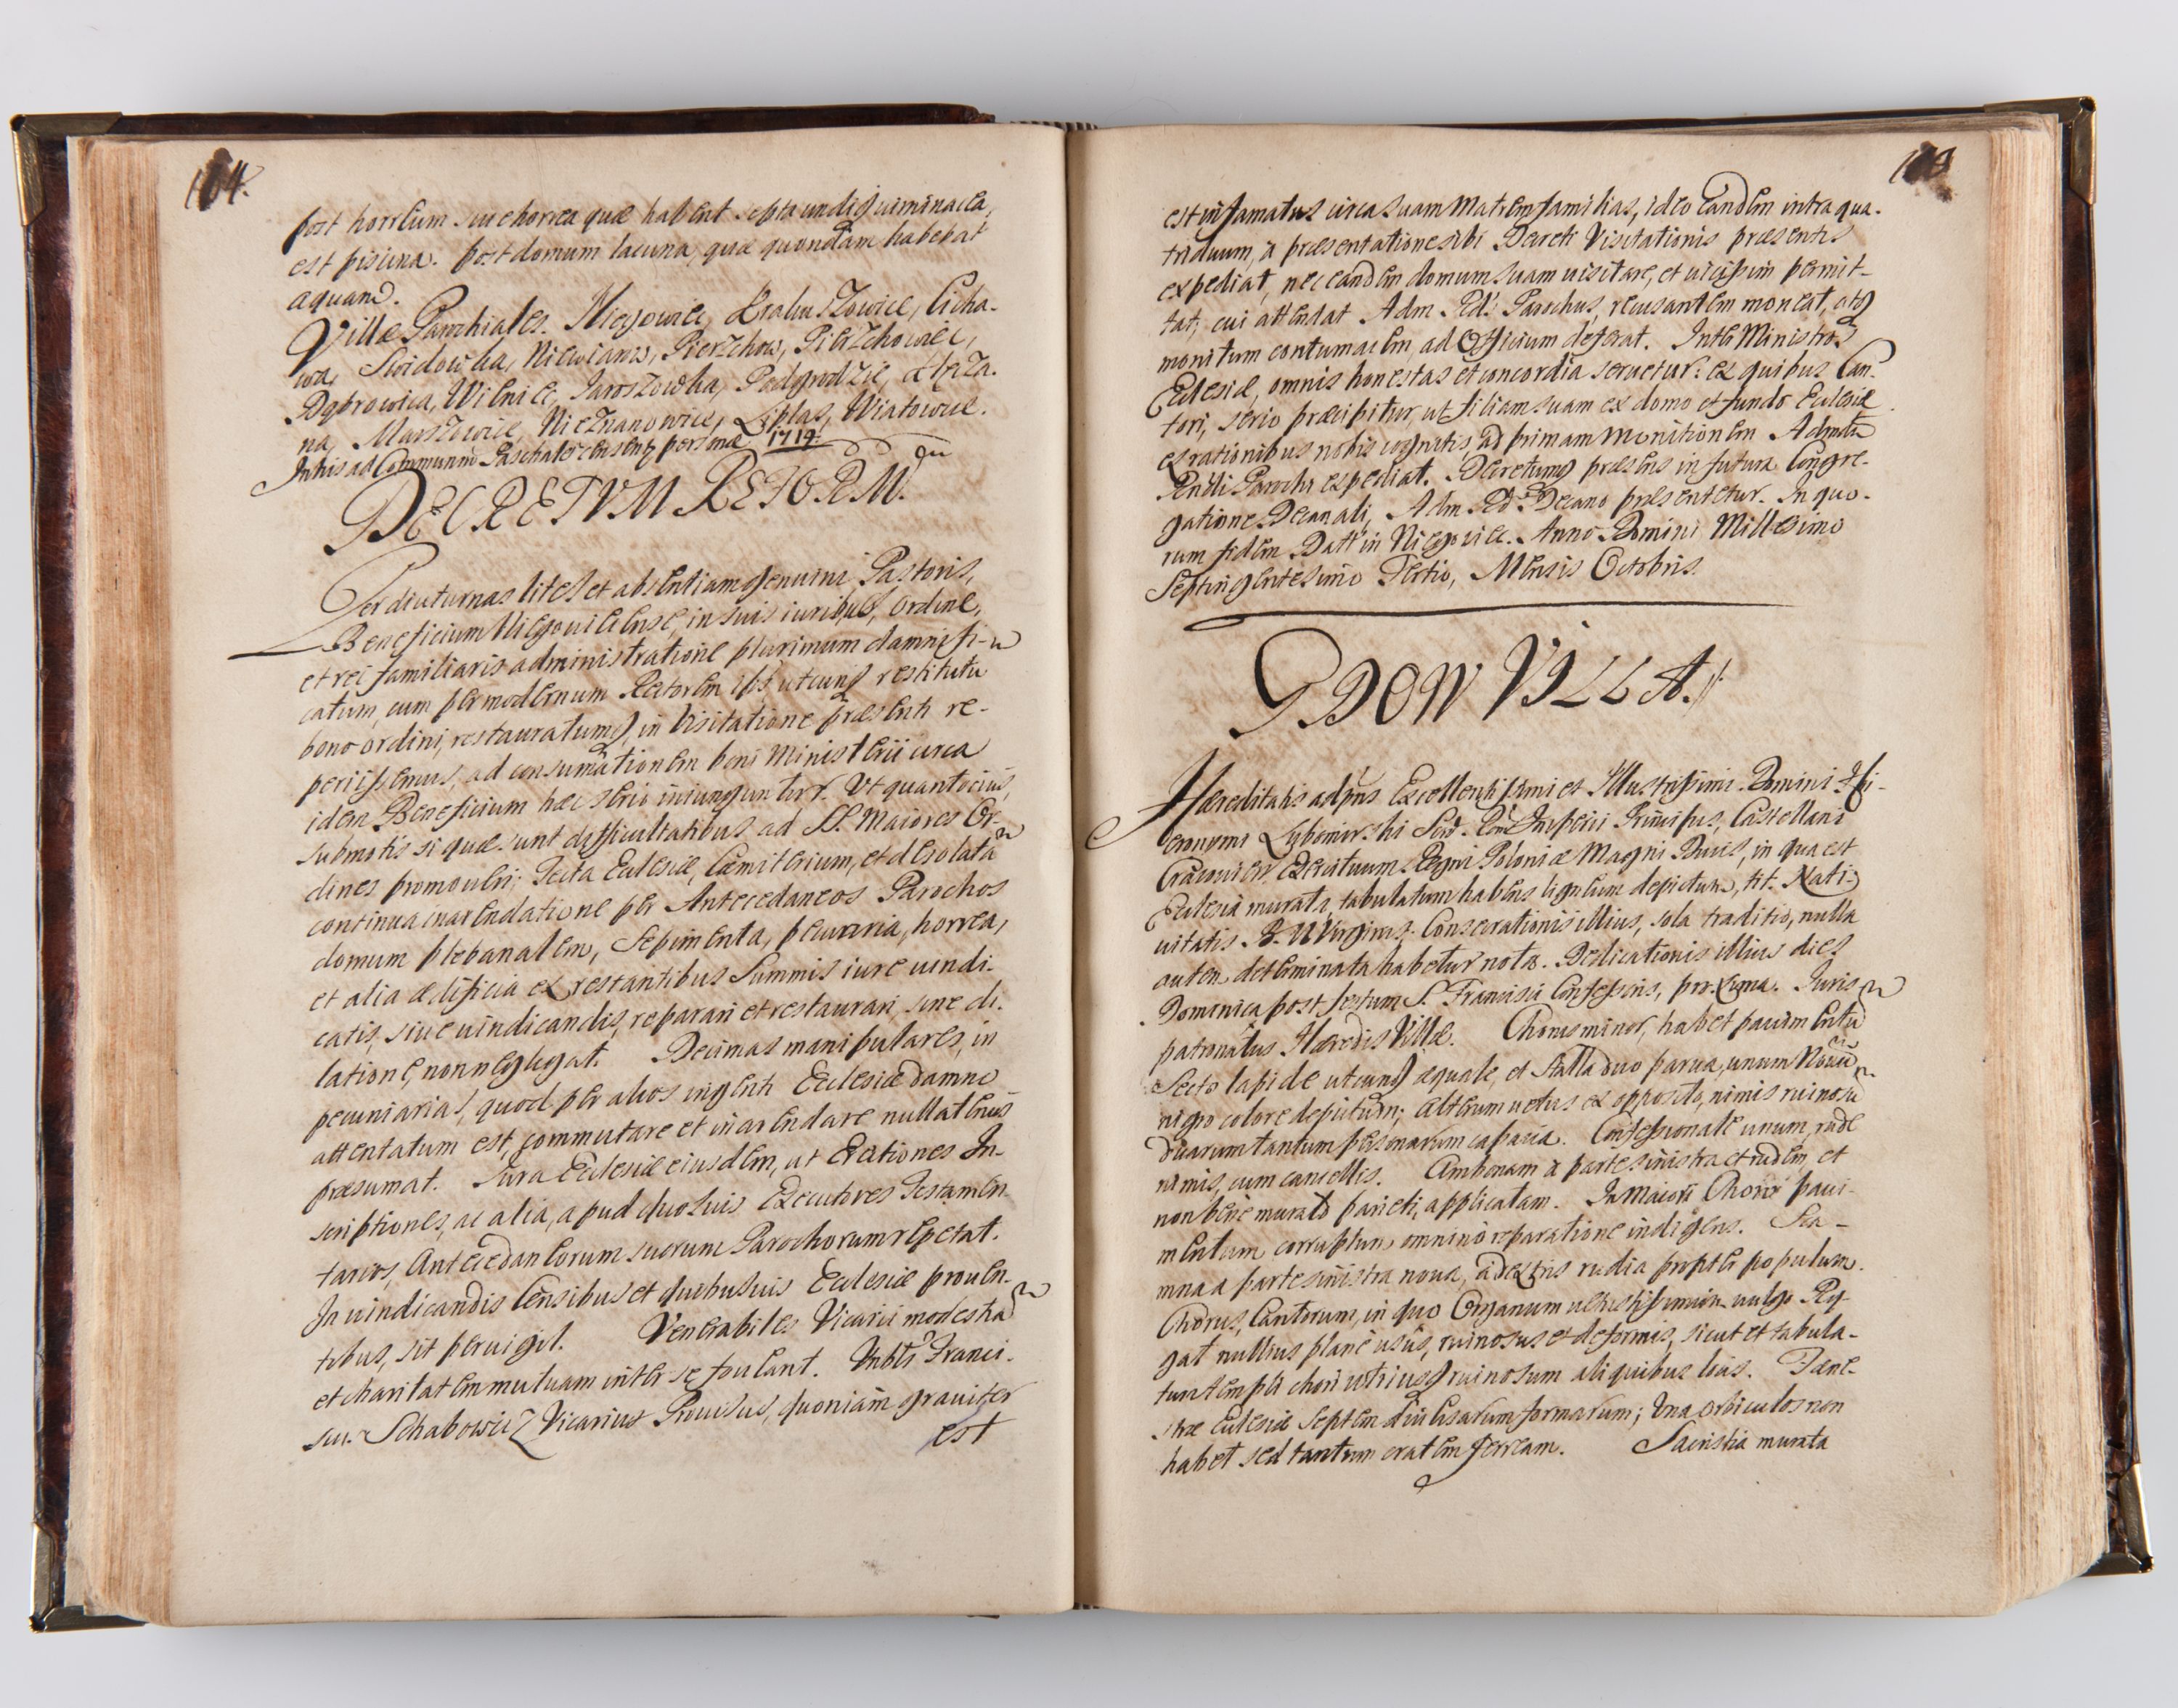 164.
post horreum siue horrea quæ habent septa undiq uiminacea,
est piscina. post domum lacuna, quæ quondam habebat
aquam.
Villæ Parochiales. Niegowice, Krakuszowice, Cicha-
wa, Swidowka, Niewiarow, Pierzchow, Pierzchowiec,
Dąbrowica, Wieniec, Jaroszowka, Podgrodzie, Xiąza-
na, Marszowice, Nieznanowice, Liplas, Wiatowice.
In his ad Communionē Paschalē censentr personæ 1719.
DECRETVM REFORM.
Per diuturnas lites et absentiam genuini Pastoris,
Beneficium Niegouicense, in suis iuribus, ordine,
et rei familiaris administratione plurimum damnifi-
catum, cum per modernum Rectorem ipsi utcunq restitutū
bono ordini, restauratumq, in Visitatione præsenti re-
perissemus, ad consumationem boni Ministerii circa
idem Beneficium hæc serio iniunguntur. Vt quantocius,
submotis si quæ sunt difficultatibus ad SS. Maiores Or-
dines promoueri; Tecta Ecclesiæ, Cæmiterium, et desolatā
continua inarendatione per Antecedaneos Parochos
domum plebanalem, Sepimenta, pecuaria, horrea,
et alia ædificia ex restantibus Summis iure uendi-
catis, siue uindicandis, reparari et restaurari, sine di-
latione, non negligat. Decimas manipulares, in
pecuniarias, quod per alios ingenti Ecclesiæ damno
attentatum est, commutare et inarendare nullatenus
præsumat. Iura Ecclesiæ eiusdem, ut Erectiones In-
scriptiones, ac alia, apud quosuis Executores Testamen-
tarios, Antecedaneorum suorum Parochorum repetat.
In uindicandis Censibus et quibusuis Ecclesiæ prouen-
tibus, sit peruigil. Venerabiles Vicarii modestiā
et charitatem mutuam inter se foueant. Vnblis Franci-
scus Schabowicz Vicarius Prouisus, quoniam grauiter
est
est infamatus circa suam Matremfamilias, ideo Eandem intra qua-
triduum, à præsentatione sibi Decreti Visitationis præsentis
expediat, nec eandem domum suam uisitare, et uicissim permit-
tat; cui attendat Adm. Rd. Parochus, recusantem moneat, atq
monitum contumacem, ad Officium deferat. Inter Ministros
Ecclesiæ, omnis honestas et concordia seruetur: ex quibus Can-
tori, serio præcipitur, ut filiam suam ex domo et fundo Ecclesiæ
ex rationibus nobis cognitis, ad primam Monitionem Admdu
Rndi Parochi expediat. Decretumq præsens in futura Congre-
gatione Decanali, Adm. Rd. Decano præsentetur. In quo-
rum fidem Datt in Niegowice. Anno Domini Millesimo
Septingentesimo Tertio, Mensis Octobris.
GDOW VILLA.
Hæreditatis ad pns Excellentissimi et Illustrissimi Domini Hi-
eronymi Lubomirski Sac. Rom Imperii Principis, Castellani
Cracouien. Exercituum Regni Poloniæ Magni Ducis, in qua est
Ecclesia murata, tabulatum habens ligneum depictum, tit. Nati-
uitatis B. M Virginis. Consecrationis illius, sola traditio, nulla
autem determinata habetur nota. Dedicationis illius dies
Dominica post festum S. Francisci Confessoris, proxima. Iuris
patronatus Hæredis Villæ. Chorus minor, habet pauimentū
Secto lapide utcunq æquale, et Stalla duo parua, unum Nouū
nigro colore depictum; alterum uetus ex opposito, nimis ruinosū
duarum tantum personarum capacia. Confessionale unum, rude
nimis, cum cancellis. Ambonam à parte sinistra et rudem, et
non bene murato parieti, applicatam. In Maiori Choro paui-
mentum corruptum omnino reparatione indigens. Sca-
mna a parte sinistra noua, à dextris rudia propter populum.
Chorus, Cantorum, in quo Organum uetustissimum uulgo Ry-
gat nullius plane usus, ruinosus et deformis, sicut et tabula-
tum templi chori utriusq ruinosum aliquibus locis. Fene-
stræ Ecclesiæ Septem diuersarum formarum; Vna orbiculos non
habet sed tantum cratem ferream. Sacristia murata